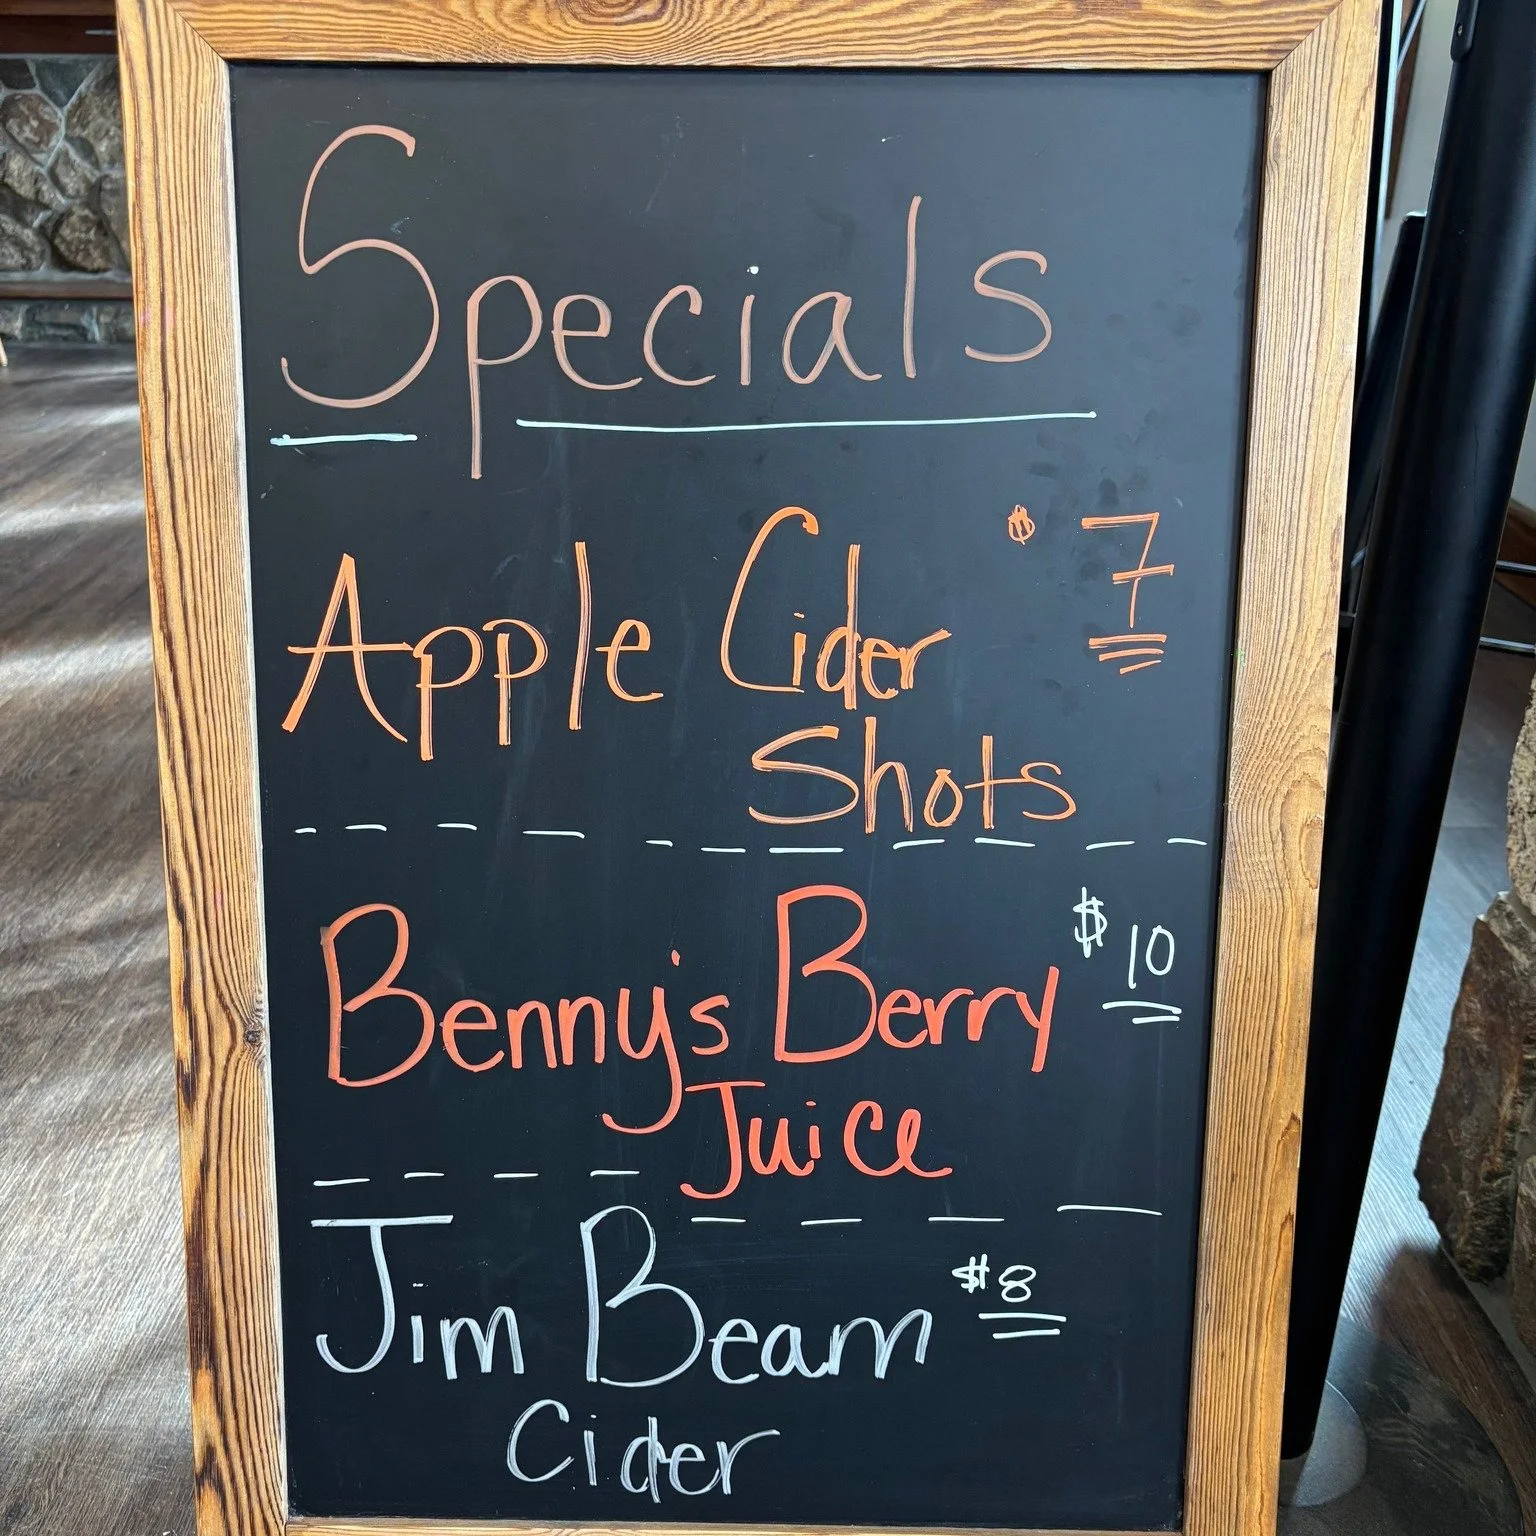 Specials
Apple Cider $7
Shots
Benny's Berry $10
Juice
Jim Beam $8
Cider